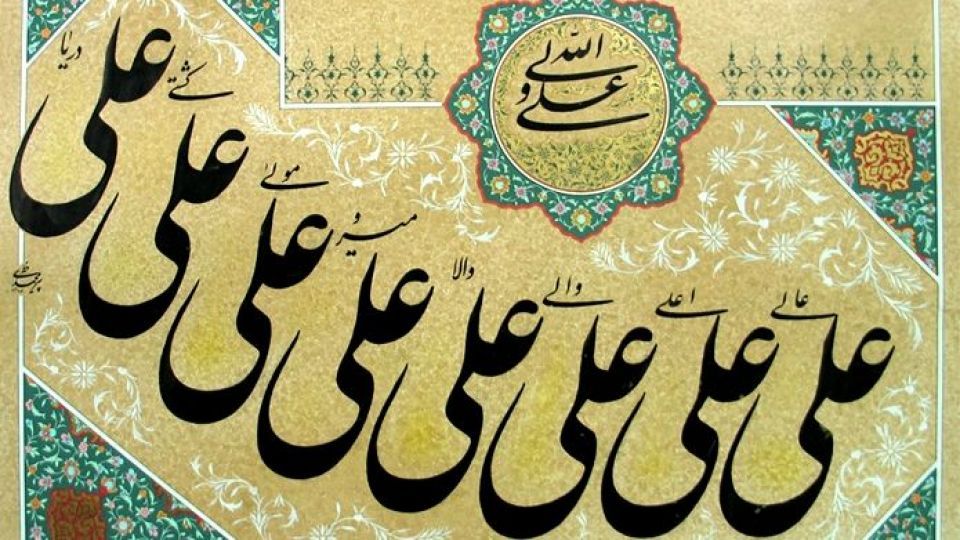 علی ولی الله
علی عالی علی اعلی علی والی علی والا علی سرور علی مولی علی کشتی علی دریا